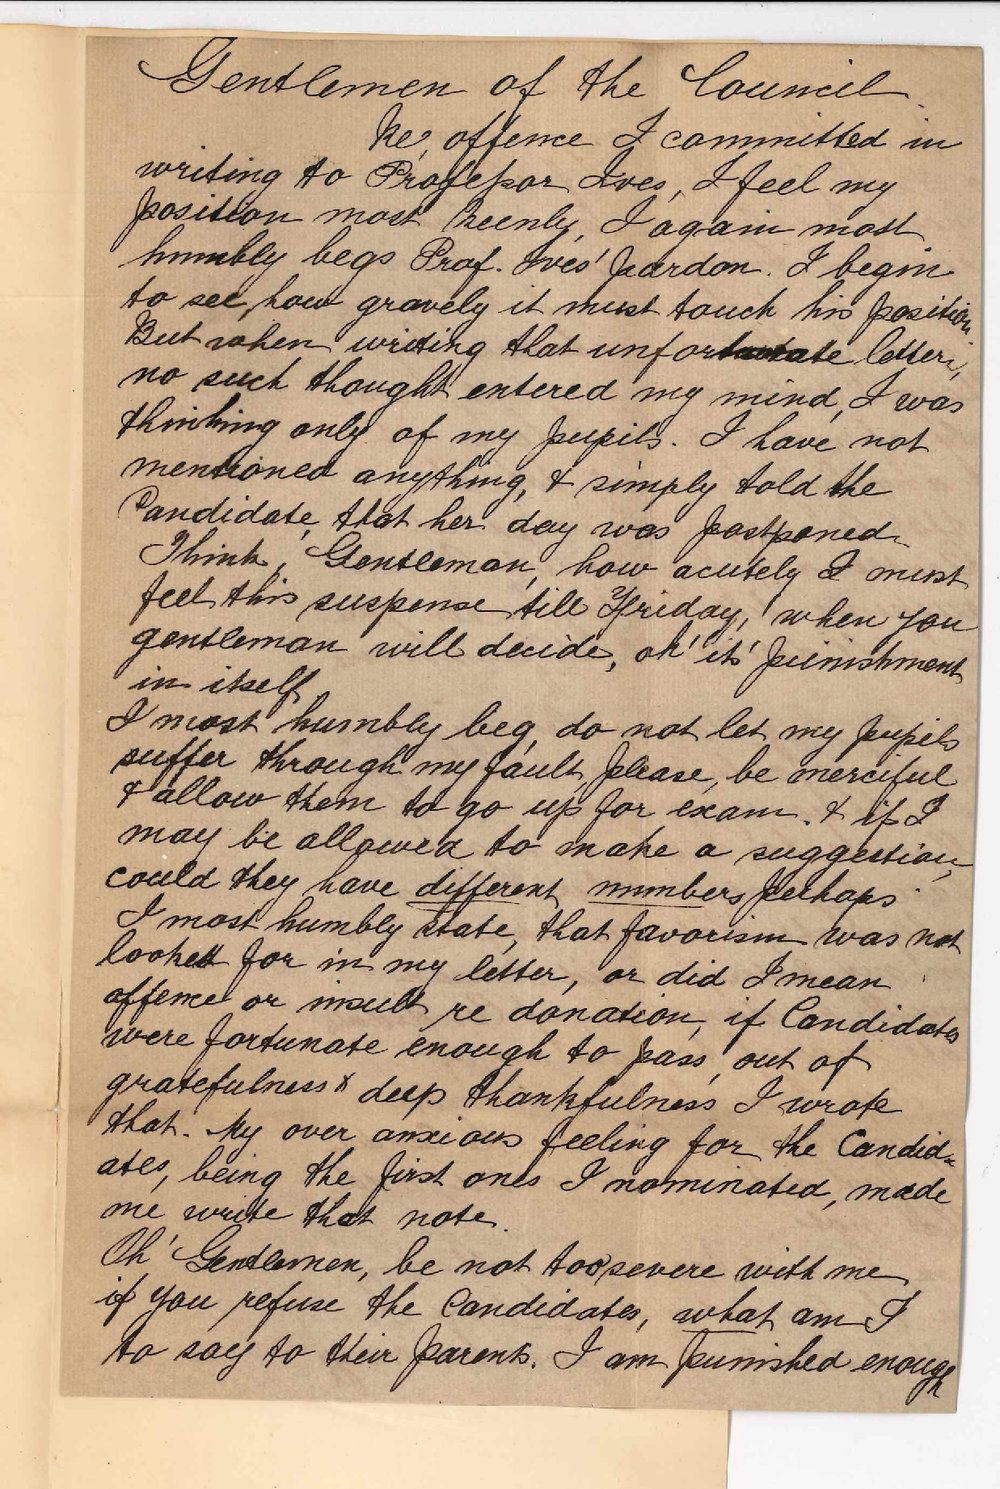 Gentlemen of the Council.
Re, offence I committed in
writing to Professor Ives, I feel my
position most keenly, I again most
humbly begs Prof. Ives' pardon. I begin
to see, how gravely it must touch his position.
But when writing that unfortunate letter,
no such thought entered my mind, I was
thinking only of my pupils. I have not
mentioned anything, & simply told the
Candidate, that her day was postponed.
Think, Gentleman, how acutely I must
feel this suspense till Friday, when you
gentleman will decide, oh' its' punishment
in itself
I most humbly beg, do not let my pupils
suffer through my fault, please, be merciful
& allow them to go up for exam. & if I
may be allowed to make a suggestion,
could they have different numbers perhaps.
I most humbly state, that favorism was not
looked for in my letter, or did I mean
offence or insult re donation, if Candidates
were fortunate enough to pass, out of
gratefulness & deep thankfulness I wrote
that. My over anxious feeling for the Candid-
ates, being the first ones I nominated, made
me write that note.
Oh' Gentlemen, be not too severe with me
if you refuse the Candidates, what am I
to say to their parents. I am punished enough